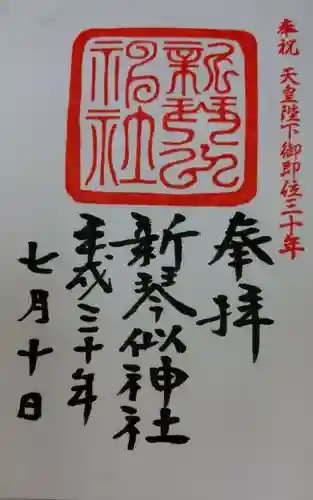 奉祝 天皇陛下御即位三十年
奉拝
新琴似神社
平成三十年
七月十日
新琴似
神社